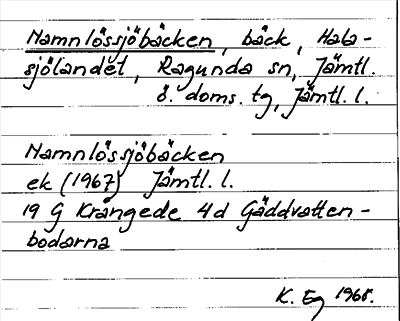 Namnlössjöbäcken, bäck, Hala-
sjölandet, Ragunda sn, Jämtl.
ö. doms. tg, Jämtl. l.
Namnlössjöbäcken
ek (1967) Jämtl. l.
19 G Krångede 4d Gäddvatten-
bodarna
K. Eg 1968.